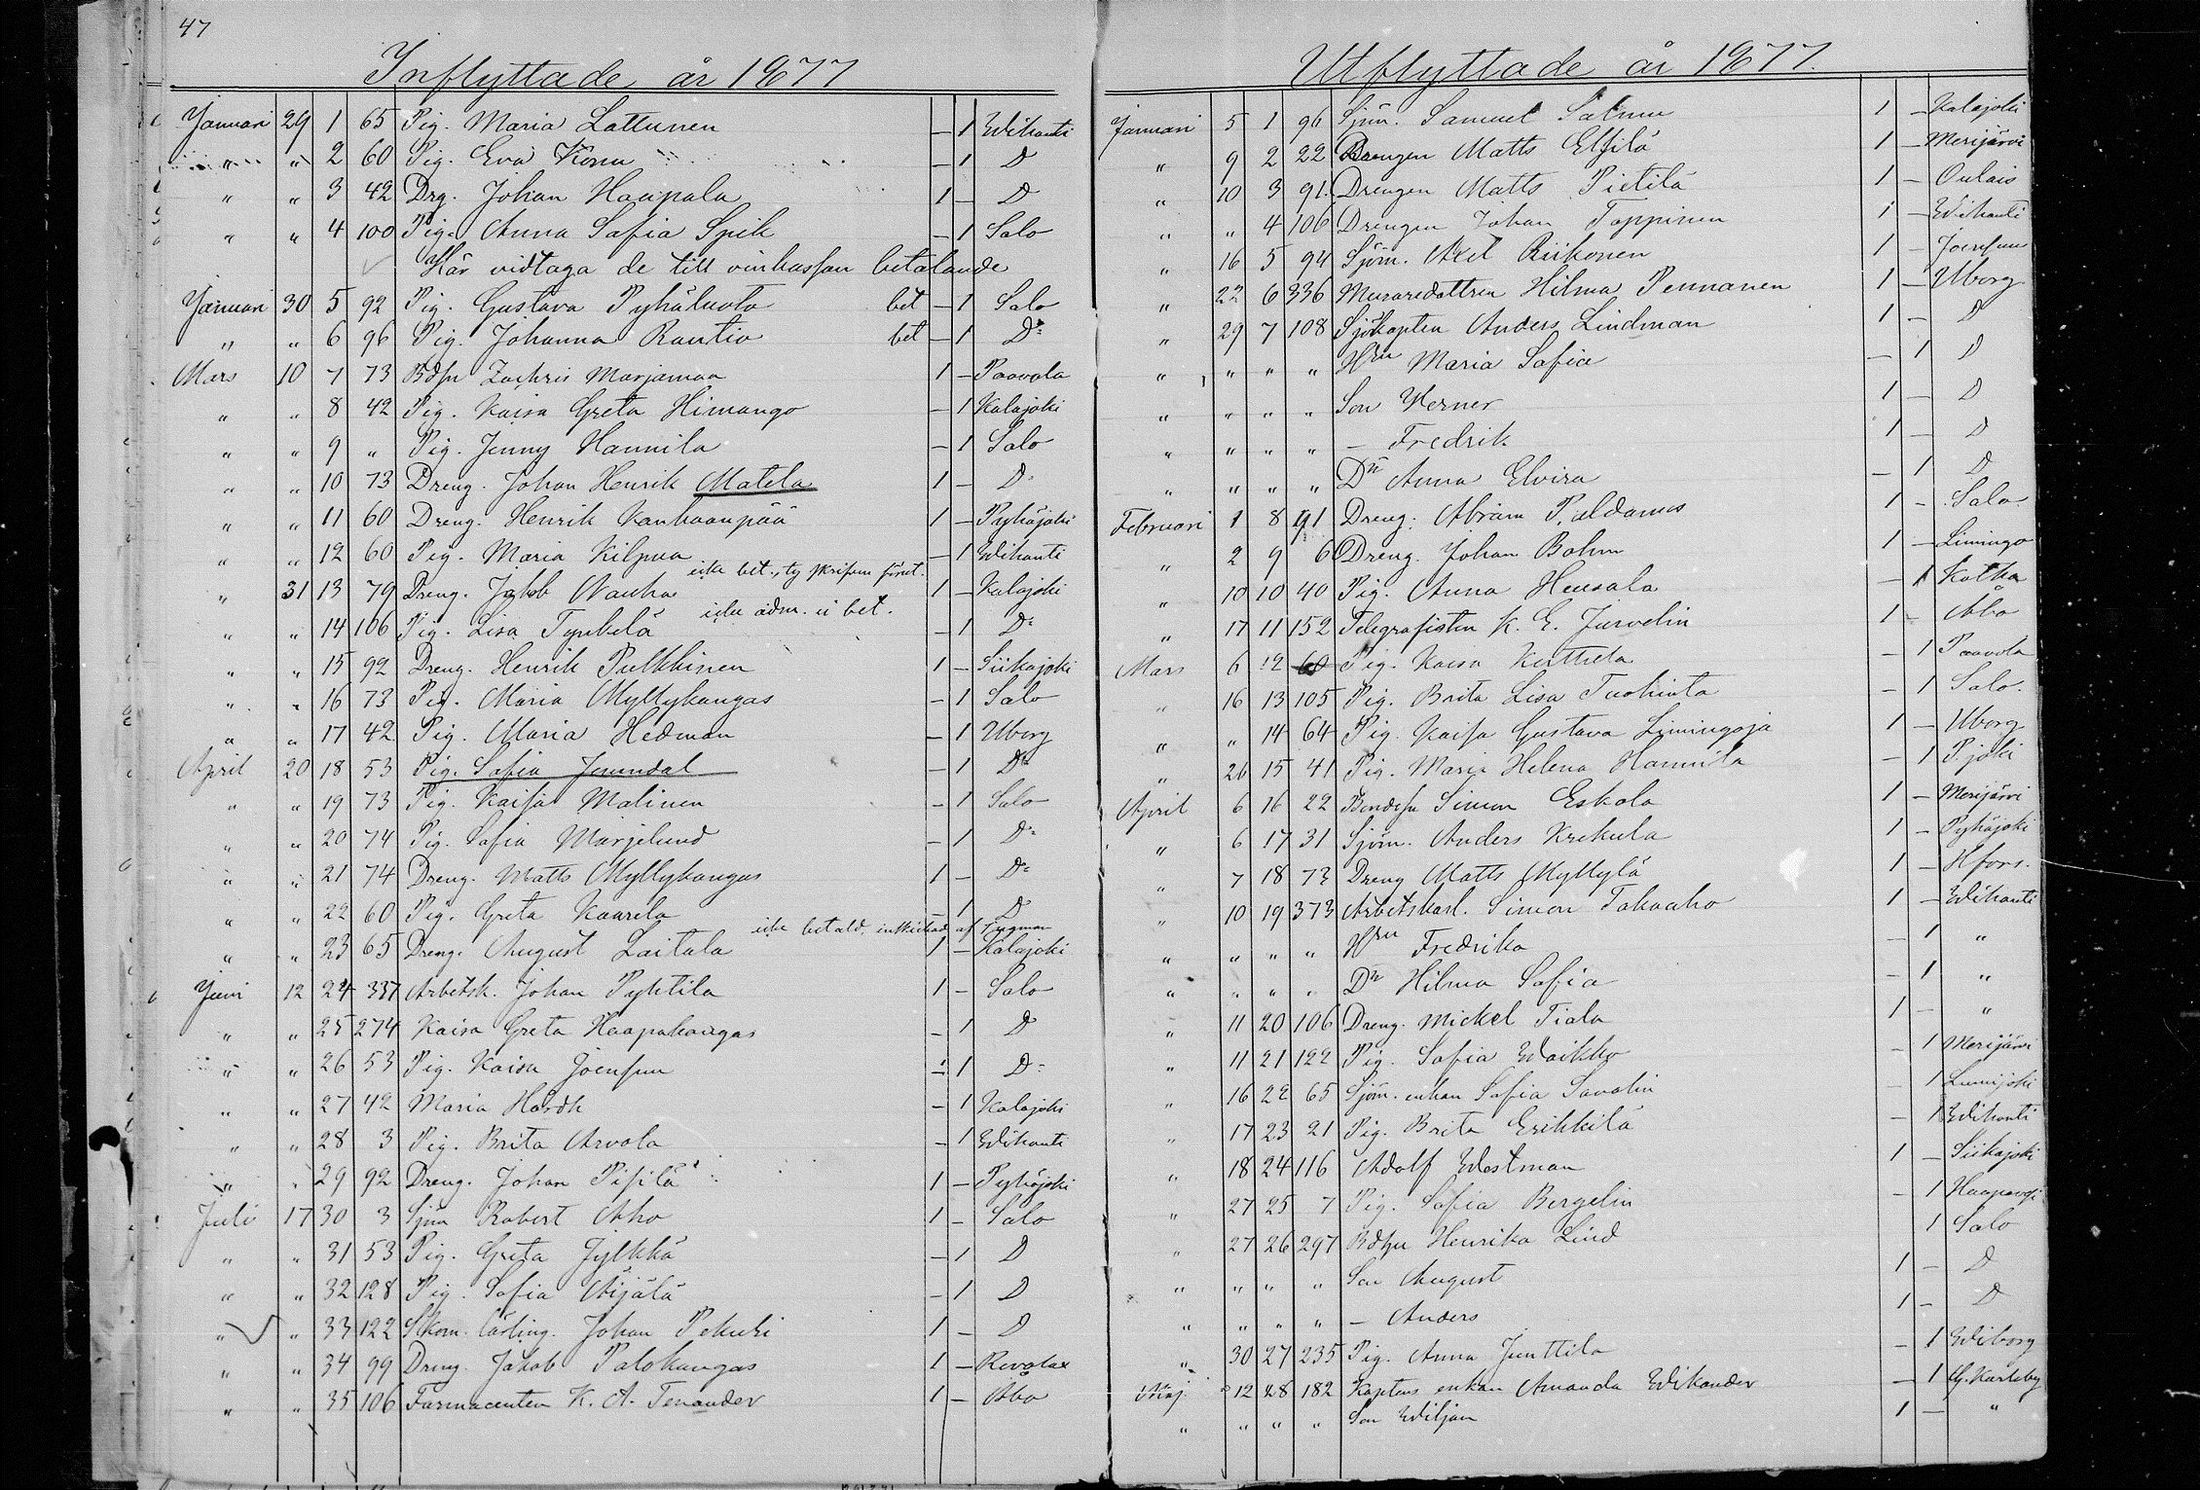 47
Inflyttade år 1877
Januari 29 1 65 Pig. Maria Lattunen — 1 Wihanti
" " 2 60 Pig. Eva Konu — 1 D
" " 3 42 Drg. Johan Haapala 1 — D
" " 4 100 Pig. Anna Sofia Spik — 1 Salo
Här vidtaga de till vinkassan betalande
Januari 30 5 92 Pig. Gustava Pyhäluoto bet — 1 Salo
" " 6 96 Pig. Johanna Rautio bet — 1 D:
Mars 10 7 73 Bdsn Zachris Marjamaa 1 — Paavola
" " 8 42 Pig. Kaisa Greta Himango — 1 Kalajoki
" " 9 " Pig. Jenny Hannila — 1 Salo
" " 10 73 Dreng. Johan Henrik Matela 1 — D:
" " 11 60 Dreng. Henrik Kanhaanpää 1 — Pyhäjoki
" " 12 60 Pig. Maria Kilpua — 1 Wihanti
" 31 13 79 Dreng. Jakob Wanha icke bet., ty 1 — Kalajoki
" " 14 106 Pig. Lisa Tynkelä icke adm. ei bet. — 1 D:
" " 15 92 Dreng. Henrik Pulkkinen 1 — Siikajoki
" " 16 73 Pig. Maria Myllykangas — 1 Salo
" " 17 42 Pig. Maria Hedman — 1 Uborg
April 20 18 53 Pig. Sofia — 1 D:
" " 19 73 Pig. Kaisa Malinen — 1 Salo
" " 20 74 Pig. Sofia Marjelund — 1 D:
" " 21 74 Dreng. Matts Myllykangas 1 — D:
" " 22 60 Pig. Greta Kaarela — 1 D
" " 23 65 Dreng. August Laitala icke betald, inskickad af 1 — Kalajoki
Juni 12 24 337 Arbetsk. Johan Pyhtila 1 — Salo
" " 25 274 Kaisa Greta Haapakangas — 1 D
" " 26 53 Pig. Kaisa Joensuu — 1 D:
" " 27 42 Maria Hårdh — 1 Kalajoki
" " 28 3 Pig. Brita Arvola — 1 Wihanti
" " 29 92 Dreng. Johan Pisilä 1 — Pyhäjoki
Juli 17 30 3 Sjöm Robert Aho 1 — Salo
" " 31 53 Pig. Greta Jylkkä — 1 D
" " 32 128 Pig. Sofia Äijälä — 1 D
" " 33 122 Skom. lärling. Johan Pekuri 1 — D
" " 34 99 Dreng. Jakob Palokangas 1 — Revolax
" " 35 106 Farmaceuten K. A. Tenander 1 — Åbo
Utflyttade år 1877.
Januari 5 1 96 Sjöm. Samuel Salmu 1 — Kalajoki
" 9 2 22 Drengen Matts Elfilä 1 — Merijärvi
" 10 3 91 Drengen Matts Pietilä 1 — Oulais
" " 4 106 Drengen Johan Toppinen 1 — Wihanti
" 16 5 94 Sjöm. Axel Riikonen 1 — Joensuu
" 22 6 336 Muraredottren Hilma Pennanen 1 — Uborg
" 29 7 108 Sjökapten Anders Lindman 1 — D
" " " " Hru Maria Sofia — 1 D
" " " " Son Werner 1 — D
" " " " — Fredrik 1 — D
" " " " Dr Anna Elvira — 1 D
Februari 1 8 91 Dreng. Abram Paldanus 1 — Salo
" 2 9 6 Dreng. Johan Bohm 1 — Limingo
" 10 10 40 Pig. Anna Heusala — 1 Kotka
" 17 11 152 Telegrafisten K. E. Jurvelin 1 — Åbo
Mars 6 12 60 Pig. Kaisa Kuttula — 1 Paavola
" 16 13 105 Pig. Brita Lisa Tuohinta — 1 Salo.
" " 14 64 Pig. Kaisa Gustava Limingoja 1 — Uborg
" 26 15 41 Pig. Maria Helena Hannila — 1 P.joki
April 6 16 22 Simon Eskola 1 — Merijärvi
" 6 17 31 Sjöm. Anders Krekula 1 — Pyhäjoki
" 7 18 73 Dreng Matts Myllylä 1 — Hfors.
" 10 19 373 Arbetskarl. Simon Takaaho 1 — Wihanti
" " " " Hru Fredrika — 1 "
" " " " Dr Hilma Sofia — 1 "
" 11 20 106 Dreng. Mickel Tiala 1 — "
" 11 21 122 Pig. Sofia Waikko — 1 Merijärvi
" 16 22 65 Sjöm. enkan Sofia Savolin — 1 Lumijoki
" 17 23 21 Pig. Brita Erikkilä — 1 Wihanti
" 18 24 116 Adolf Westman 1 — Siikajoki
" 27 25 7 Pig. Sofia Bergelin — 1 Haapavesi
" 27 26 297 Bdsn Henrika Lind 1 Salo
" " " " Son August 1 — D
" " " " — Anders 1 — D
" 30 27 235 Pig. Anna Junttila — 1 Wiborg
Maj 12 28 182 Kaptens enkan Amanda Wikander — 1 G. Karleby
" " " " Son Wiljam 1 — "